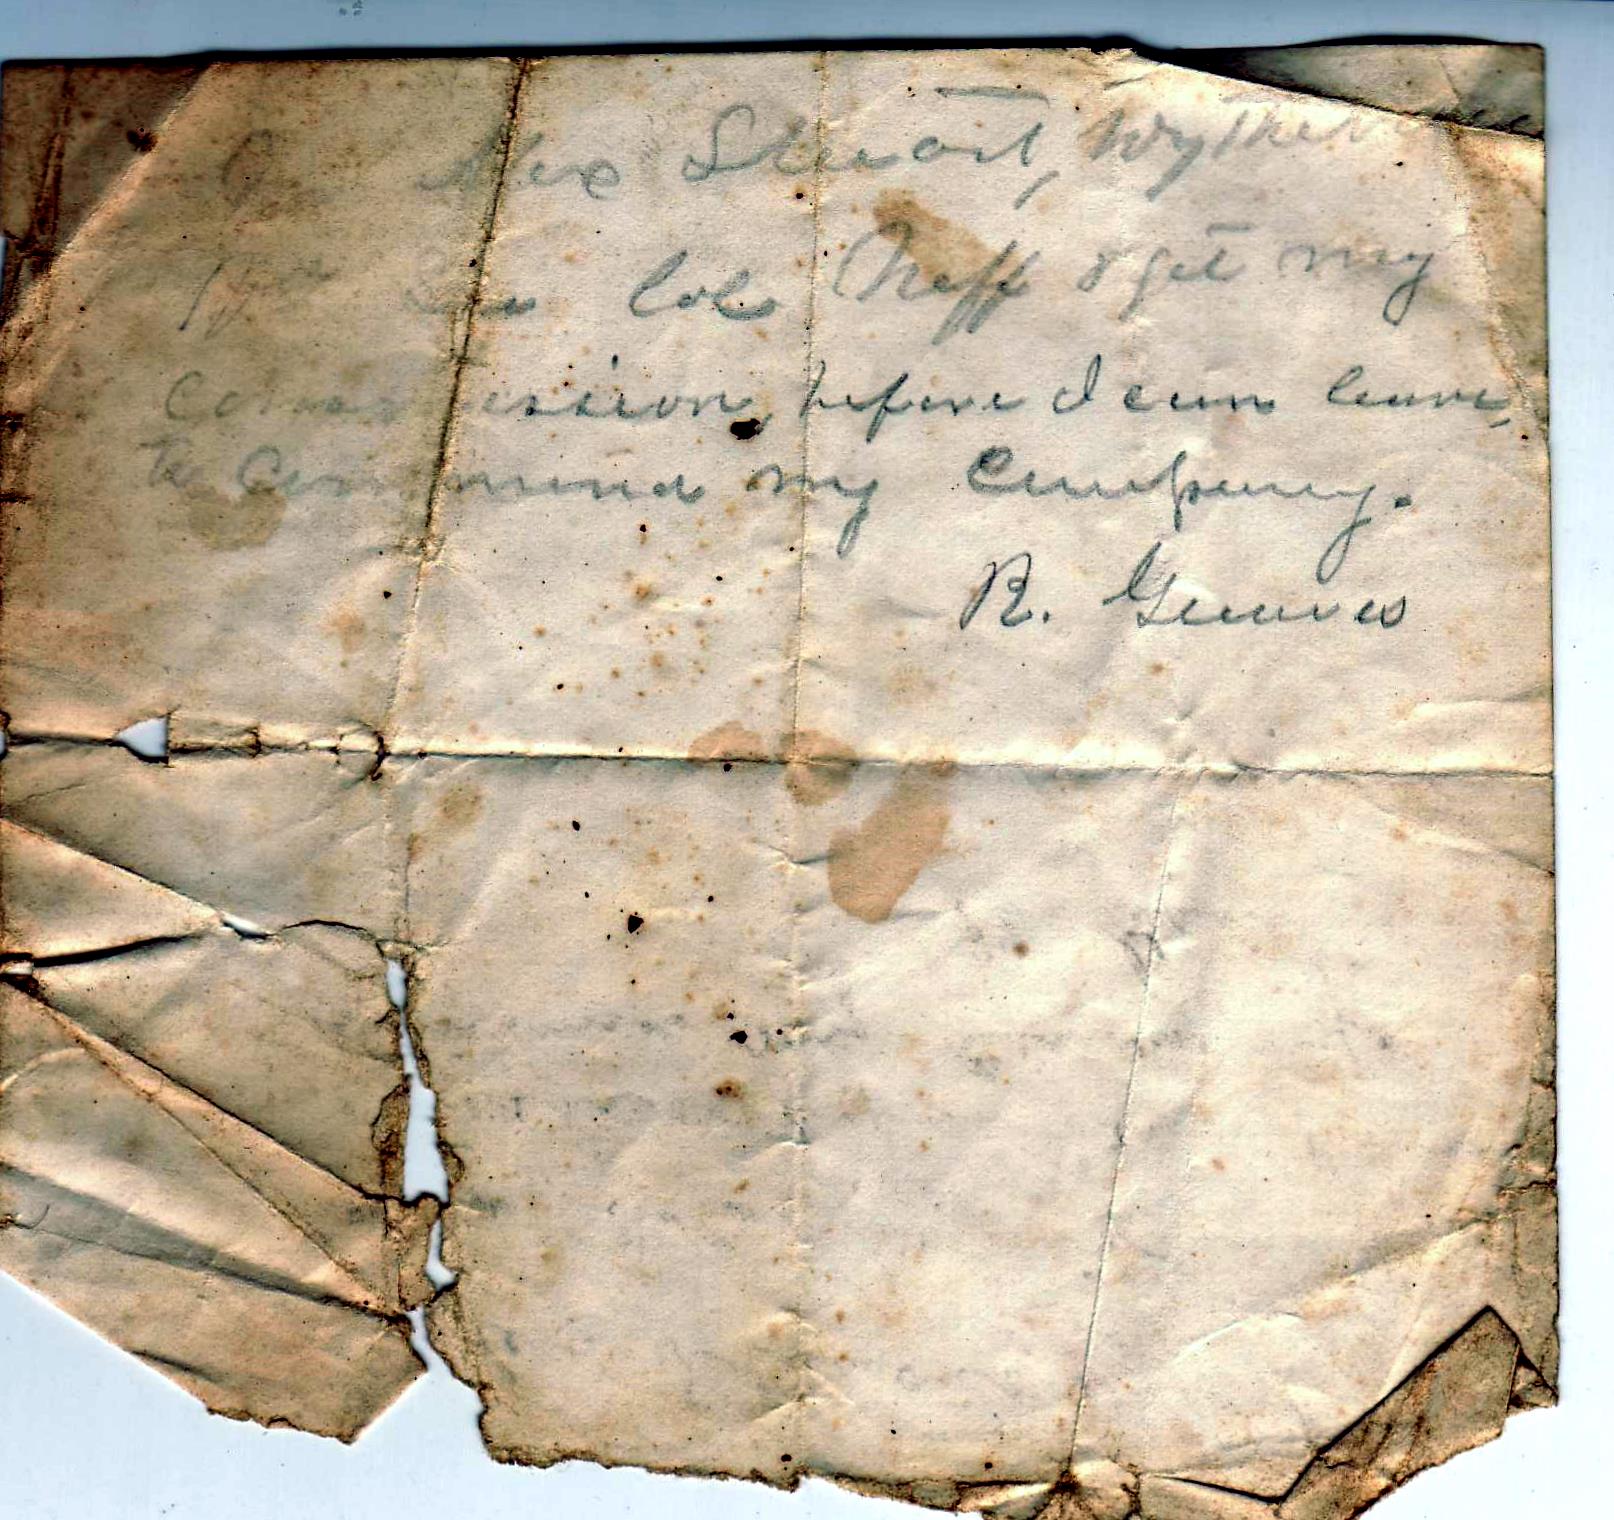 Alex Stuart, Wytheville
See Col. Neff & get my
commission, before I can leave,
to command my Company.
R. Graves